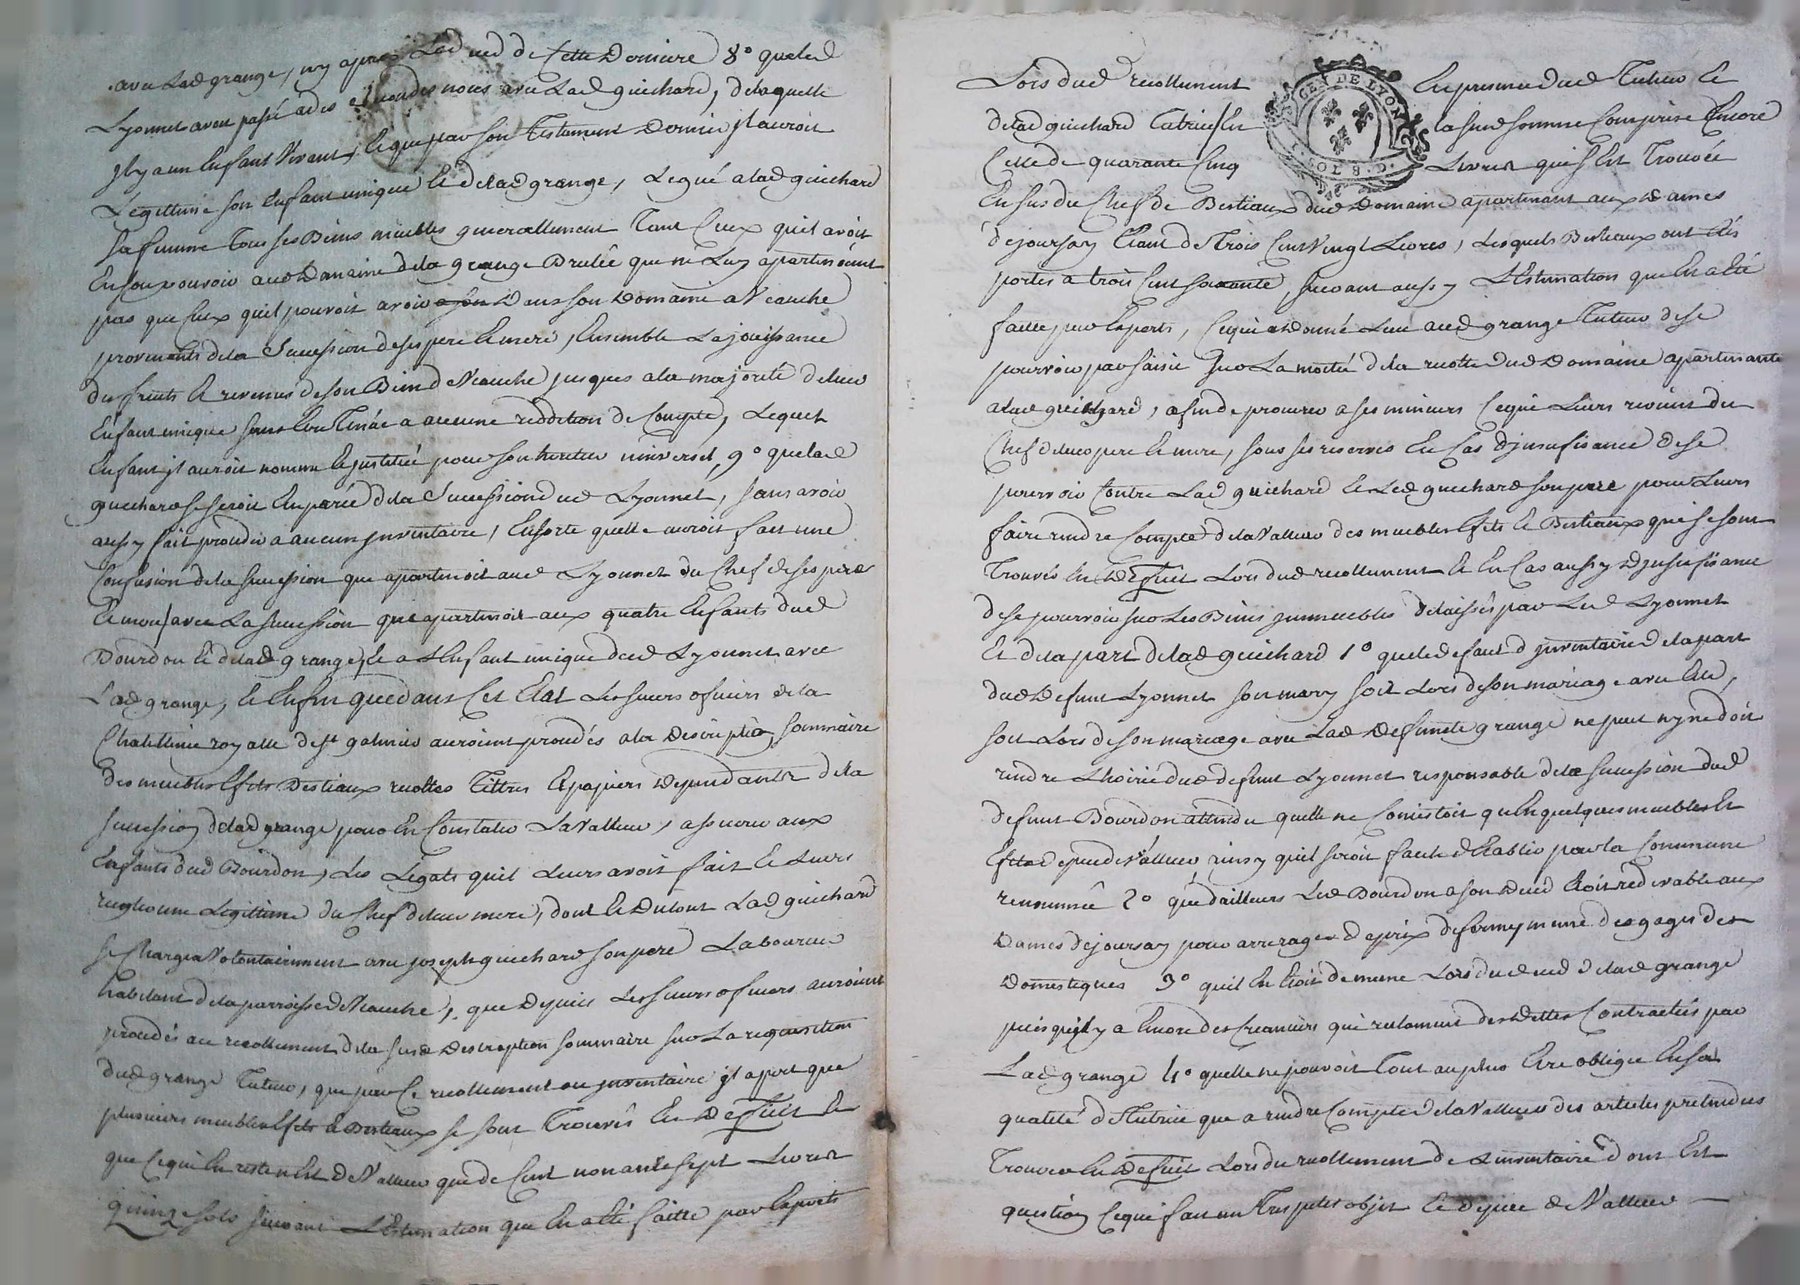 avec Lad grange, ny apres Led ced de Cette Derniere 8° queled
Lyonnet avoit passé a des secondes noces avec Lad guichard, delaquelle
jl y a un Enfant vivant, Et que par son Testament Dernier jl auroit
Legittime son Enfant unique Et delad grange, Legué alad guichard
sa femme tous ses Biens meubles generallement Tant Ceux quil avoit
En son pouvoir aud Domaine dela grange Brulée que ne Luy apartenoient
pas que Ceux quil pouvoit avoir Dans son Domaine a Veauche
provenants dela Succession de ses pere Et mere, Ensemble La jouissance
des fruits Et revenus de son Bien de Veauche jusques ala majorité deleur
Enfant unique sans Etre Tenue a aucune reddition de Compte, Lequel
Enfant jl auroit nommé Et jnstitué pour son heritier universel, 9° quelad
guichard se seroit Emparée dela Succession dud Lyonnet, sans avoir
aussy fait proceder a aucun jnventaire, Ensorte quelle auroit fait une
Confusion dela succession que apartenoit aud Lyonnet du Chef de ses pere
Et mere, avec La succession qui apartenoit aux quatre Enfants dud
Bourdon Et delad grange, Et a L'Enfant unique dud Lyonnet avec
Lad grange, Et Enfin que dans Cet Etat Les sieurs officiers dela
Chatellenie royalle de st galmier auroient procédés ala Description sommaire
des meubles Effets Bestiaux recoltes Tittres Et papiers Dependants dela
succession delad grange pour En Constater La Valleur, assurer aux
Enfants dud Bourdon, Les Legats quil Leurs avoit fait Et Leurs
Legittime du Chef deleur mere, dont Et Dutout Lad guichard
se Chargea Volontairement avec joseph guichard son pere Laboureur
habitant dela parroisse de Veauche, que Depuis Les sieurs officiers auroient
procedés au recollement dela susd Description sommaire sur La requisition
dud grange Tuteur, que par Ce recollement ou jnventaire jl apert que
plusieurs meubles Effets Et Bestiaux se sont Trouvés En Deficit Et
que Ce qui En reste n'Est De Valleur que de Cent nonante sept Livres
quinze sols suivant L'Estimation que En a Eté faitte par Experts
Lors dud recollement En presence dud Tuteur Et
delad guichard Tutrice, En la susd somme Comprise Encore
Celle de quarante Cinq Livres qui s'Est Trouvée
En sus du Chef de Bestiaux dud Domaine apartenant aux Dames
de joursay Etant de Trois Cent Vingt Livres, Lesquels Bestiaux ont Etés
portés a trois Cent soixante, suivant aussy L'Estimation que En a Eté
faitte par Experts, Ce qui a Donné Lieu aud grange Tuteur de se
pourvoir par saisie sur La moitié dela recolte dud Domaine apartenante
alad guichard, afin de procurer a ses mineurs Ce qui Leurs revient du
Chef deleur pere Et mere, sous ses reserves En Cas d'jnsufisance de se
pourvoir Contre Lad guichard Et Led guichard son pere pour Leurs
faire rendre Compte dela Valleur des meubles Effets Et Bestiaux que se sont
Trouvés En Deficit Lors dud recollement Et En Cas aussy D'jnsufisance
de se pourvoir sur Les Biens jmmeubles delaissés par Led Lyonnet
Et dela part delad guichard 1° que le defaut d'jnventaire dela part
dud Defunt Lyonnet son mary soit Lors de son mariage avec Elle,
soit Lors de son mariage avec Lad Defunte grange ne peut ny ne doit
rendre L'hoirie dud defunt Lyonnet responsable dela succession dud
defunt Bourdon attendu quelle ne Consistoit qu'En quelques meubles Et
Effets de peu de Valleur ainsy quil seroit facile d'Etablir par la Commune
renommée 2° que d'ailleurs Led Bourdon a son Deced Etoit redevable aux
Dames de joursay pour arrerages de prix de ferme, meme des gages des
Domestiques 3° quil En Etoit de meme Lors du deced delad grange
puis quil y a Encore des Creanciers qui reclament des Dettes Contractées par
Lad grange 4° quelle ne pouvoit Tout au plus Etre obligée En sa
qualité de Tutrice que a rendre Compte dela Valleur des articles pretendues
Trouvées En Deficit Lors du recollement de L'jnventaire dont Est
question Ce qui fait un Tres petit objet Et De peu de Valleur